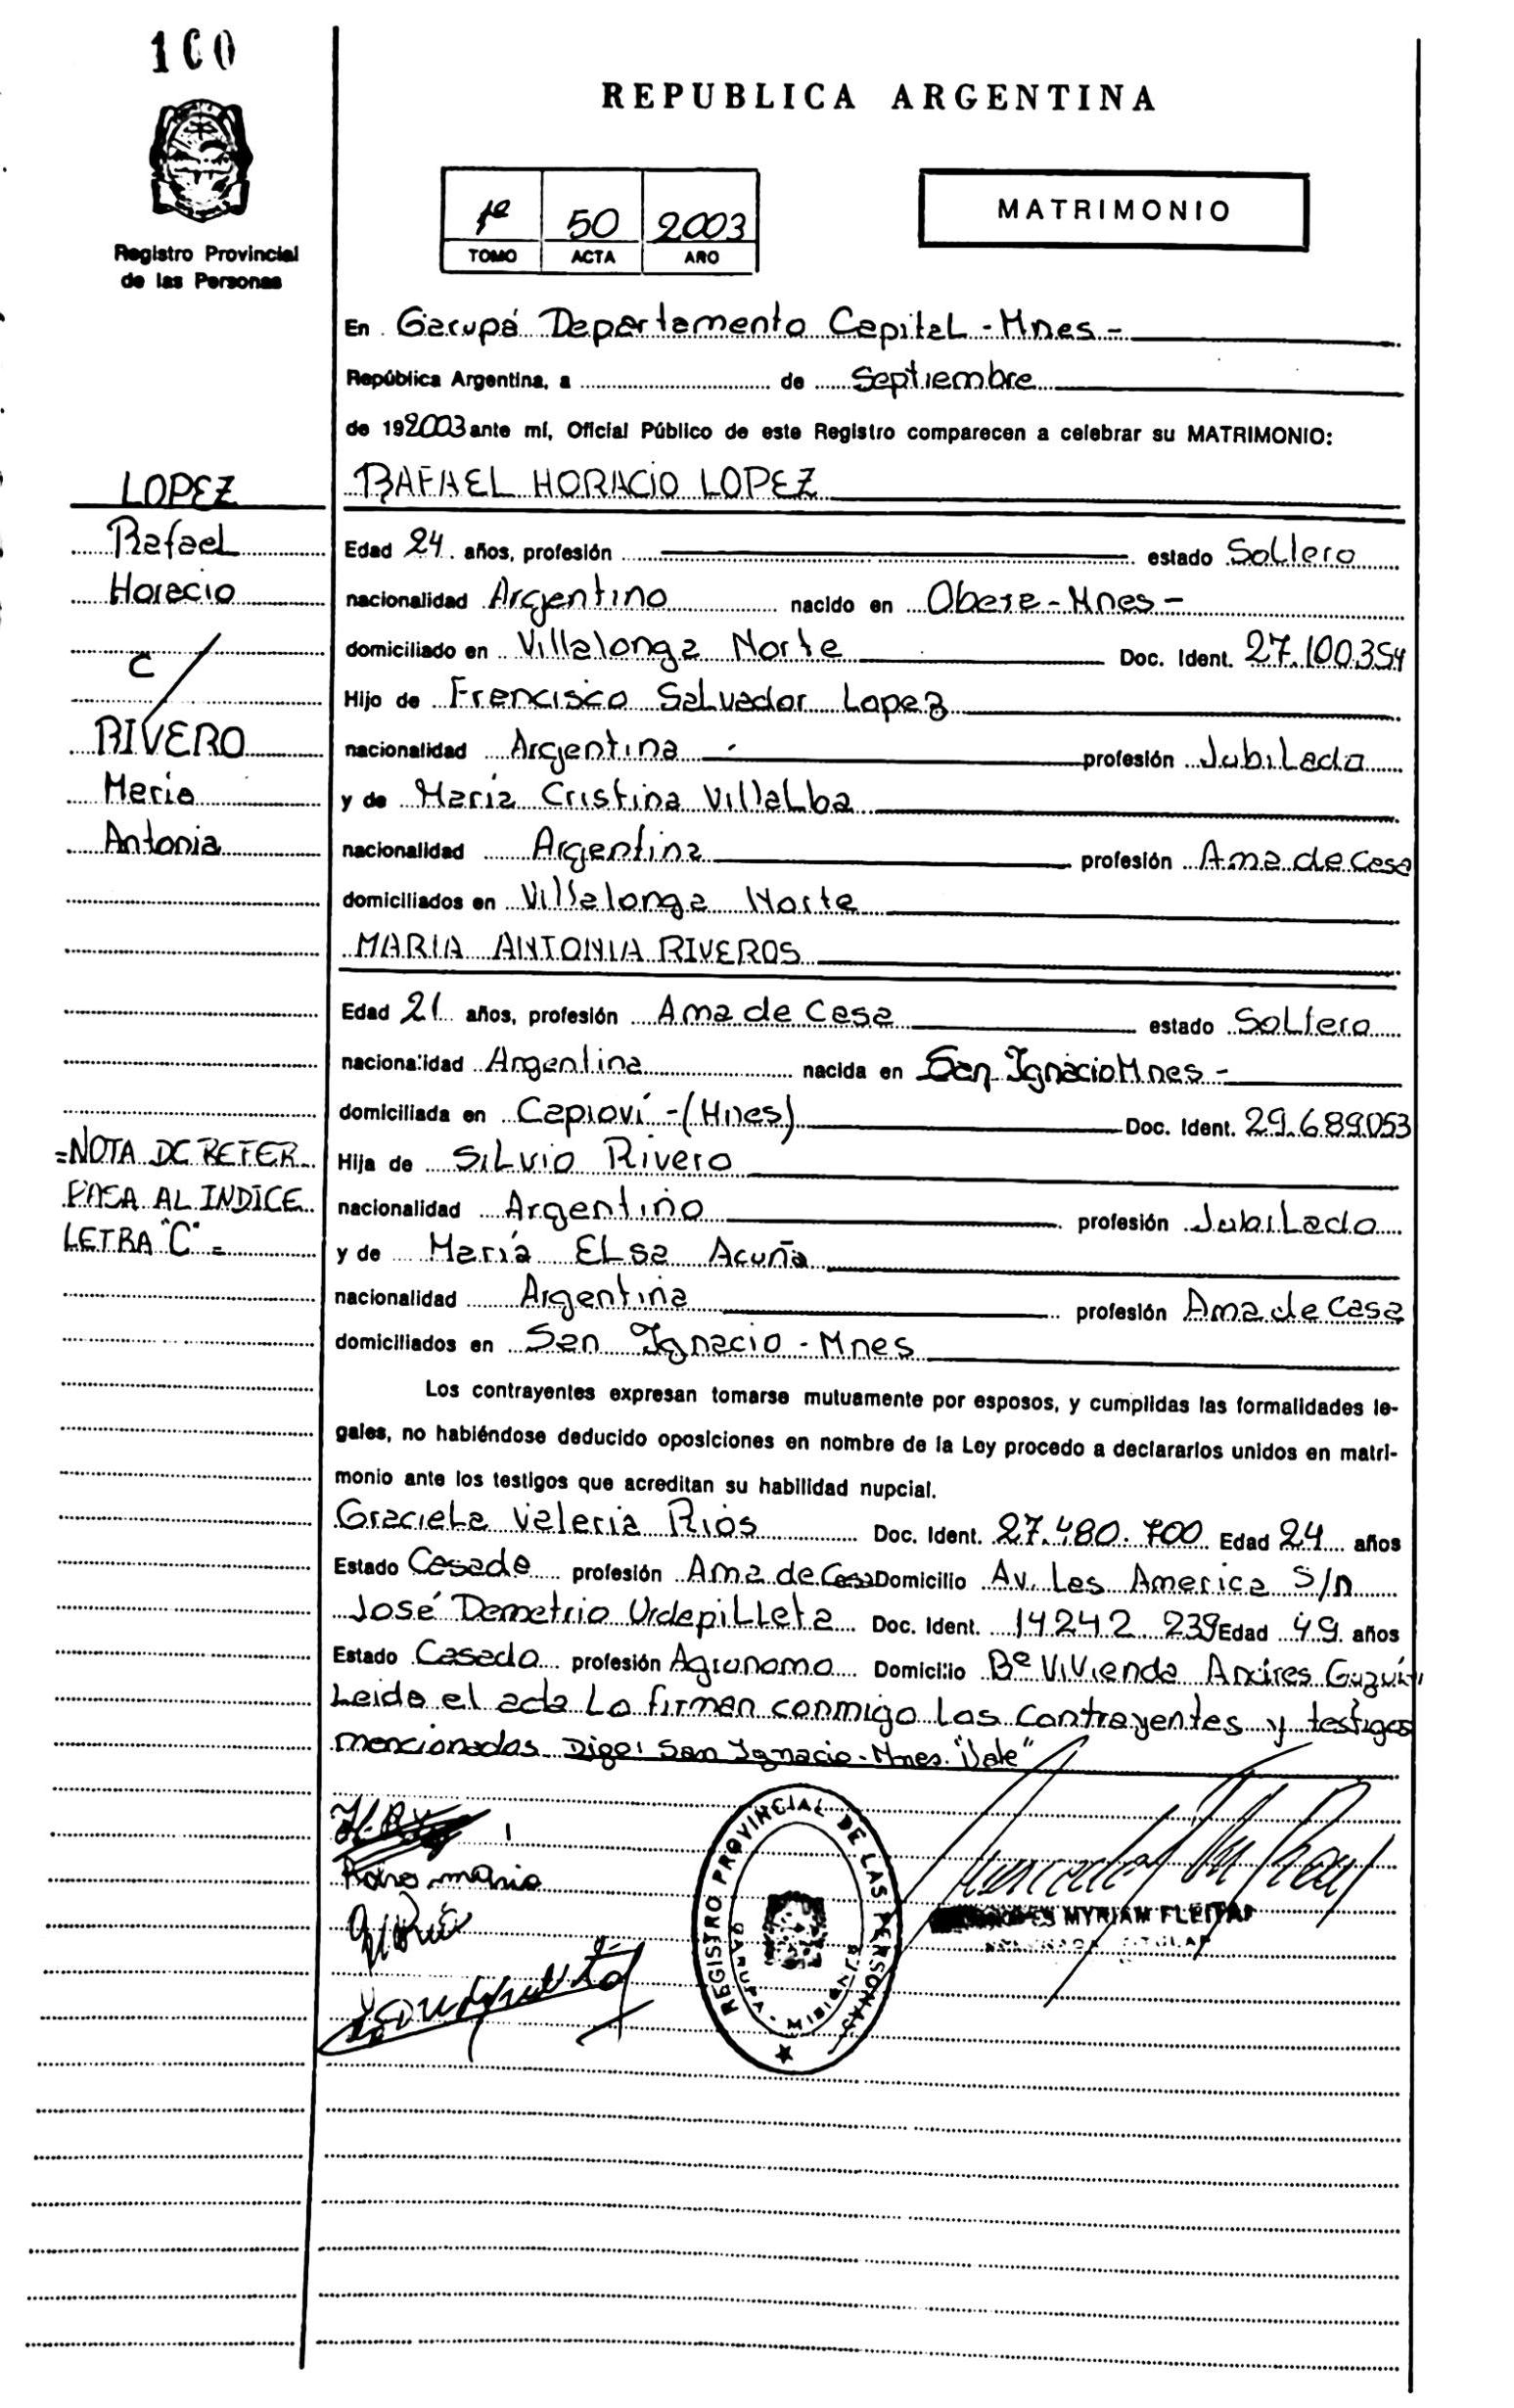 100
REPUBLICA ARGENTINA
Registro Provincial
de las Personas
1º 50 2003
TOMO ACTA AÑO
MATRIMONIO
En Garupá Departamento Capital - Mnes -
República Argentina, a de Septiembre
de 192003 ante mí, Oficial Público de este Registro comparecen a celebrar su MATRIMONIO:
LOPEZ
Rafael
Horacio
C/
RIVERO
Maria
Antonia
=NOTA DE REFER
PASA AL INDICE
LETRA "C" =
RAFAEL HORACIO LOPEZ
Edad 24 años, profesión estado Soltero
nacionalidad Argentino nacido en Obera - Mnes -
domiciliado en Villalonga Norte Doc. Ident. 27.100.354
Hijo de Francisco Salvador Lopez
nacionalidad Argentina profesión Jubilado
y de María Cristina Villalba
nacionalidad Argentina profesión Ama de Casa
domiciliados en Villalonga Norte
MARIA ANTONIA RIVEROS
Edad 21 años, profesión Ama de Casa estado Soltero
nacionalidad Argentina nacida en San Ignacio Mnes -
domiciliada en Capioví - (Mnes) Doc. Ident. 29.689.053
Hija de Silvio Rivero
nacionalidad Argentino profesión Jubilado
y de María Elsa Acuña
nacionalidad Argentina profesión Ama de Casa
domiciliados en San Ignacio - Mnes
Los contrayentes expresan tomarse mutuamente por esposos, y cumplidas las formalidades le-
gales, no habiéndose deducido oposiciones en nombre de la Ley procedo a declararlos unidos en matri-
monio ante los testigos que acreditan su habilidad nupcial.
Graciela Valeria Rios Doc. Ident. 27.480.700 Edad 24 años
Estado Casada profesión Ama de Casa Domicilio Av. Las America S/n
José Demetrio Urdapilleta Doc. Ident. 14242 239 Edad 49 años
Estado Casado profesión Agronomo Domicilio Bº Vivienda Andres
Leida el acta lo firman conmigo los contrayentes y testigos
mencionados Digo: San Ignacio - Mnes. "Vale"
REGISTRO PROVINCIAL DE LAS PERSONAS
GARUPA - MISIONES
MYRIAM FLEITAS